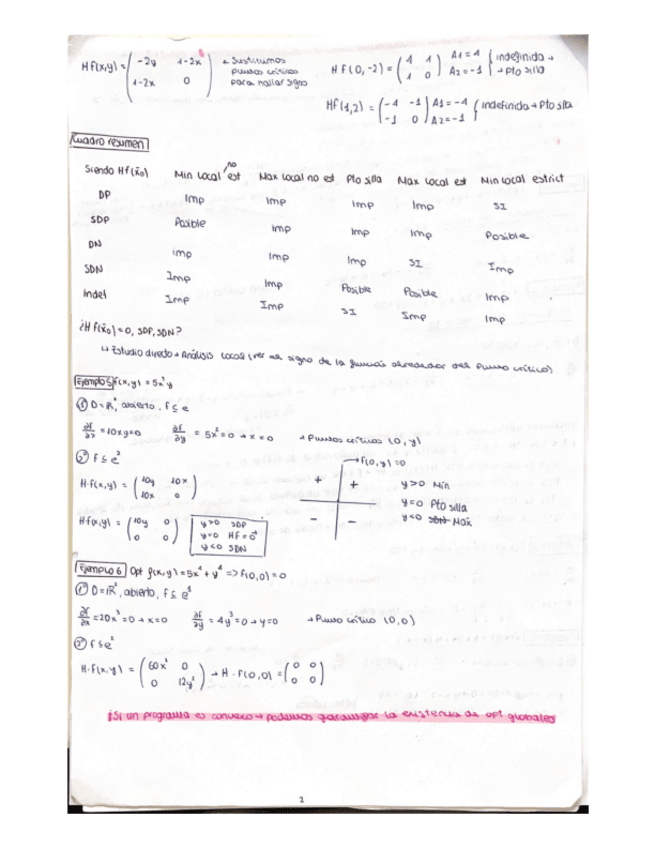 Hf(x,y) = ( -2y 1-2x ; 1-2x 0 ) → Sustituimos puntos críticos para hallar signo
Hf(0,-2) = ( 4 1 ; 1 0 ) A1=4 A2=-1 { indefinida → → Pto silla
Hf(1,2) = ( -4 -1 ; -1 0 ) A1=-4 A2=-1 { indefinida → Pto silla
Cuadro resumen
Siendo Hf(x̄0) Min Local no est Max Local no est Pto silla Max Local est Min Local estrict
DP Imp Imp Imp Imp SI
SDP Posible Imp Imp Imp Posible
DN Imp Imp Imp SI Imp
SDN Imp Imp Posible Posible Imp
Indef Imp Imp SI Imp Imp
¿Hf(x̄0)=0, SDP, SDN?
↳ Estudio directo → Análisis Local (ver el signo de la función alrededor del punto crítico)
Ejemplo 5 f(x,y) = 5x²y
① D=ℝ², abierto, f ⊆ e
∂f/∂x = 10xy=0 ∂f/∂y = 5x²=0 → x=0 → Puntos críticos (0,y)
② f ⊆ e²
→ f(0,y)=0
H·f(x,y) = ( 10y 10x ; 10x 0 )
+ + y>0 Min
y=0 Pto silla
- - y<0 Max
Hf(0,y) = ( 10y 0 ; 0 0 )
y>0 SDP
y=0 HF=0
y<0 SDN
Ejemplo 6 Opt f(x,y)=5x⁴+y⁴ => f(0,0)=0
① D=ℝ², abierto, f ⊆ e¹
∂f/∂x = 20x³=0 → x=0 ∂f/∂y = 4y³=0 → y=0 → Punto crítico (0,0)
② f ⊆ e²
H·f(x,y) = ( 60x² 0 ; 0 12y² ) → H·f(0,0) = ( 0 0 ; 0 0 )
¡Si un programa es convexo → podemos garantizar la existencia de opt globales
2